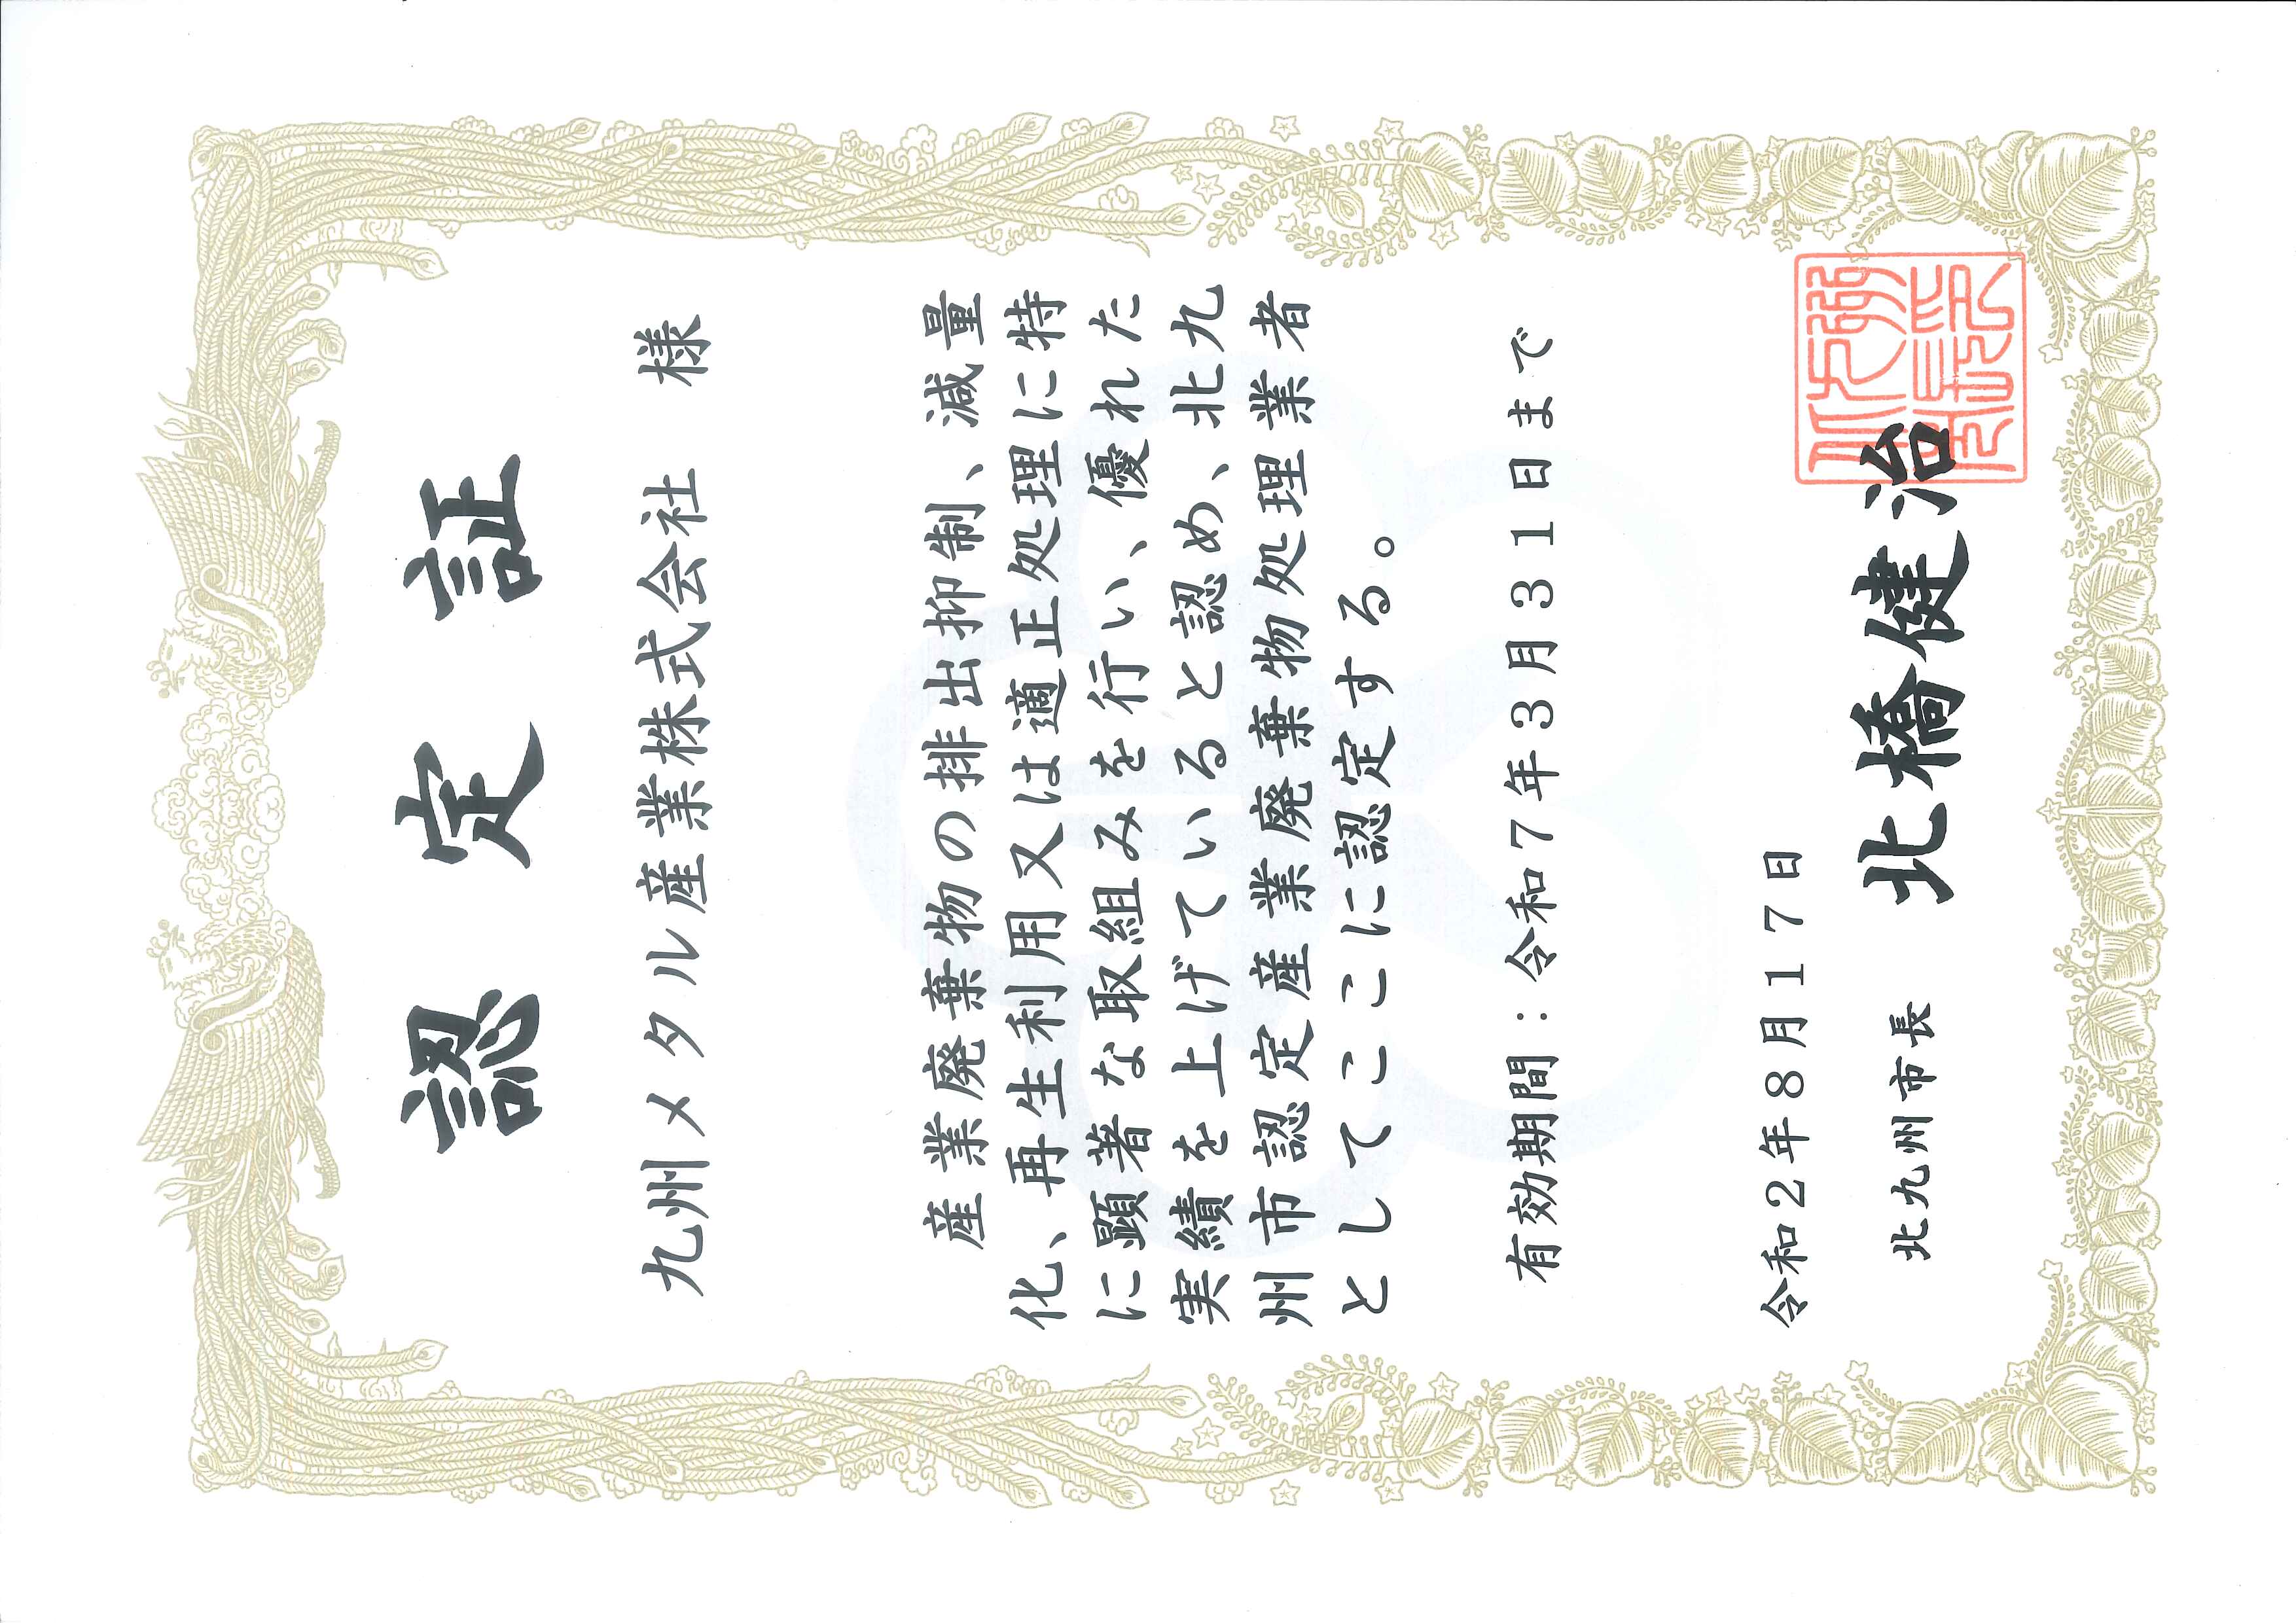 認定証
九州メタル産業株式会社　様
産業廃棄物の排出抑制、減量
化、再生利用又は適正処理に特
に顕著な取組みを行い、優れた
実績を上げていると認め、北九
州市認定産業廃棄物処理業者
としてここに認定する。
有効期間：令和７年３月３１日まで
令和２年８月１７日
北九州市長　北橋健治